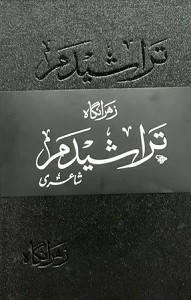 تراشیدم
زہرا نگاہ
تراشیدم
شاعری
زہرا نگاہ